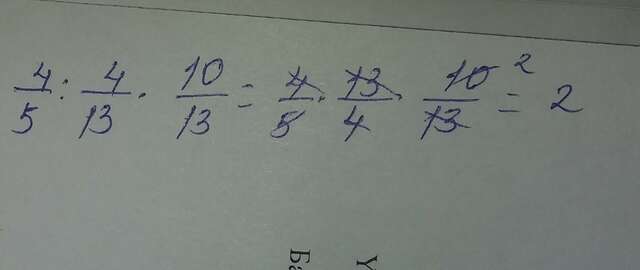 4/5 : 4/13 · 10/13 = 4/5 · 13/4 · 10/13 2 = 2
Ба
У